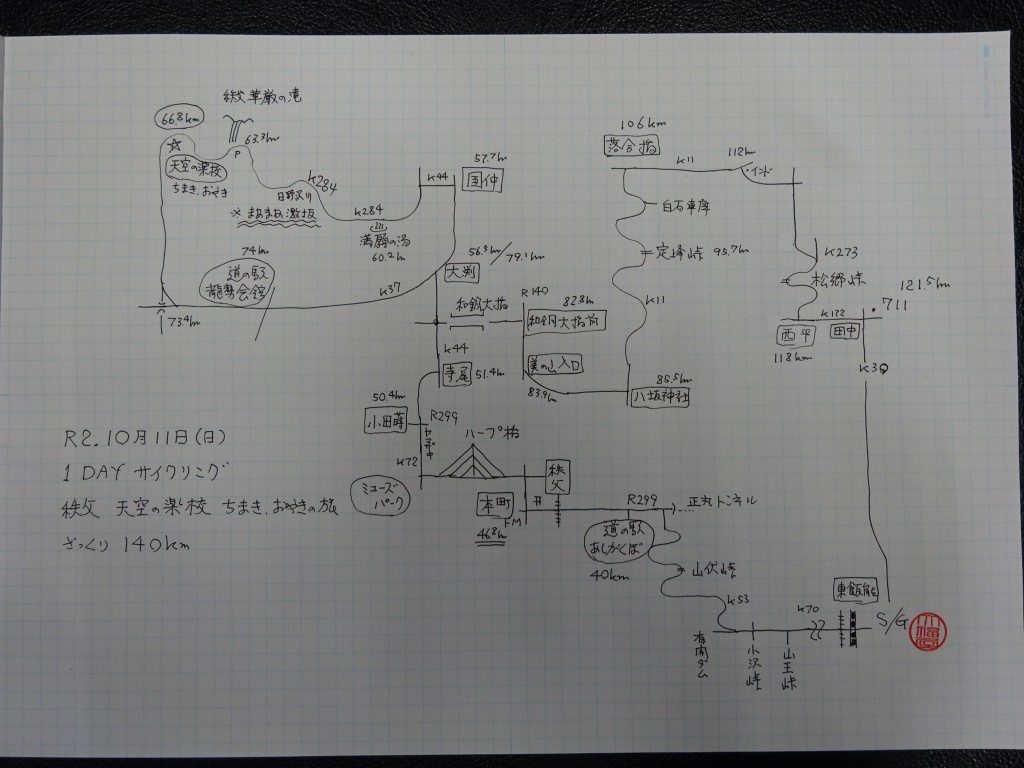 秩父華厳の滝
66.8km
63.3km
P
天空の楽校
ちまき.おやき
K284
日野沢川
※まあまあ激坂
K284
満願の湯
60.2km
K44
57.7km
国仲
56.5km/79.1km
大渕
74km
道の駅
龍勢会館
K37
73.4km
和銅大橋
R140
82.8km
和銅大橋前
美の山入口
83.9km
85.5km
八坂神社
K44
寺尾
51.4km
50.4km
小田蒔
R299
ヤオキ
K72
ハープ橋
ミューズ
パーク
秩父
本町
FM
46.8km
R299
正丸トンネル
道の駅
あしがくぼ
40km
山伏峠
K53
有間ダム
小沢峠
山王峠
K70
東飯能
S/G
106km
落合橋
K11
112km
インド
白石車庫
定峰峠 95.7km
K11
K273
松郷峠
K172
西平
118km
田中
121.5km
711
K30
R2.10月11日(日)
1 DAY サイクリング
秩父 天空の楽校 ちまき.おやきの旅
ざっくり 140km